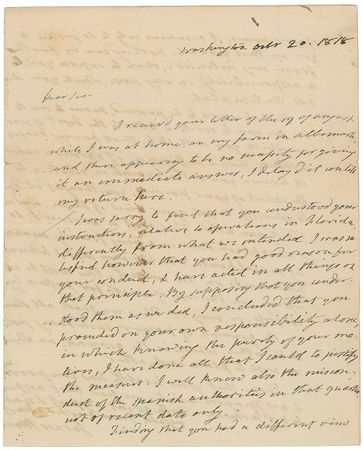 Washington Octr 20. 1818
Dear Sir
I receiv'd your letter of the 19 of august
while I was at home, on my farm in albemarle,
and there appearing to be no necessity for giving
it an immediate answer, I delay'd it untill
my return here.
I was sorry to find that you understood your
instructions, relative to operations in Florida
differently from what we intended. I was sa
tisfied however that you had good reason for
your conduct, & have acted in all things on
that principle. By supposing that you under
stood them as we did, I concluded that you
proceeded on your own responsibility alone
in which knowing the purity of your mo
tives, I have done all that I could to justify
the measure. I well knew also the miscon
duct of the Spanish authorities in that quarter
not of recent date only.
Finding that you had a different view